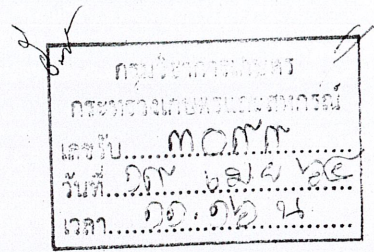 กรมวิชาการเกษตร
กระทรวงเกษตรและสหกรณ์
เลขรับ
วันที่ ๑๙ เมย ๖๔
เวลา ๑๑.๑๖ น